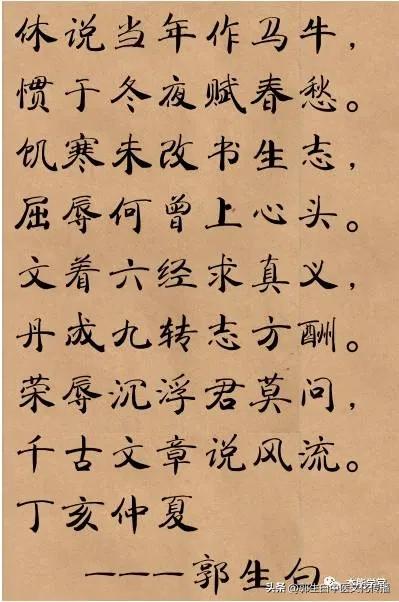 休说当年作马牛，
惯于冬夜赋春愁。
饥寒未改书生志，
屈辱何曾上心头。
文着六经求真义，
丹成九转志方酬。
荣辱沉浮君莫问，
千古文章说风流。
丁亥仲夏
———郭生白
头条 @郭生白中医文化传播